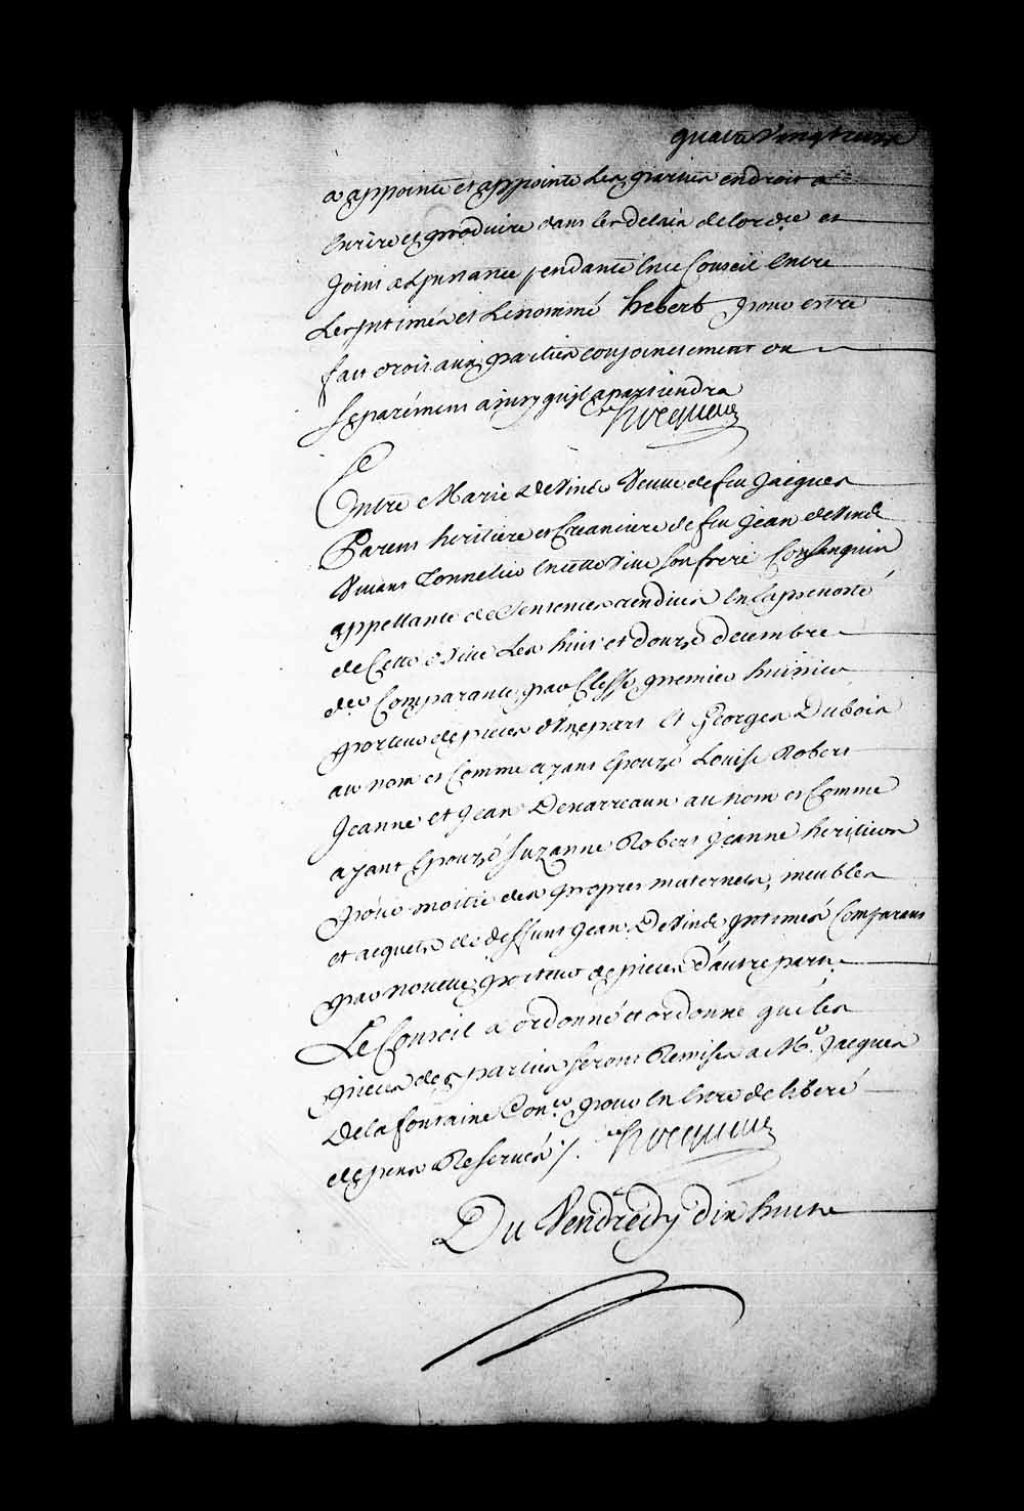 quatre Vingt
a appointé et appointe les parties en droit a
Ecrire et produire dans les delais de lordce et
Joint a Linstance pendante en ce Conseil Entre
Les Intimés et Le nommé hebert pour estre
fait droit aux parties conjointement ou
Separément ainsy quil apartiendra
hocquart
Entre Marie deVinde Veuve de feu Jacques
Parent heritiere et Creanciere de feu Jean deVinde
Vivant Tonnelier en cette Ville son frere Consanguin
appellante de Sentences rendües en la prevosté
de Cette Ville Les huit et douze decembre
dr Comparante par Clesse premier huissier
porteur de pieces d'Une part Et Georges Dubois
au nom et Comme ayant Epouzé Louise Robert
Jeanne et Jean Denarreaux au nom et Comme
ayant Epouzé Suzanne Robert Jeanne heritiers
pour moitié des propres maternels, meubles
et acquets de deffunt Jean DeVinde Intimés Comparans
par nouette porteur de pieces d'autre part.
Le Conseil a ordonné et ordonne que les
pieces des parties seront Remises a Me. Jacques
Delafontaine Coner. pour En Estre deliberé
depens Reservés /. hocquart
Du Vendredy dix huit